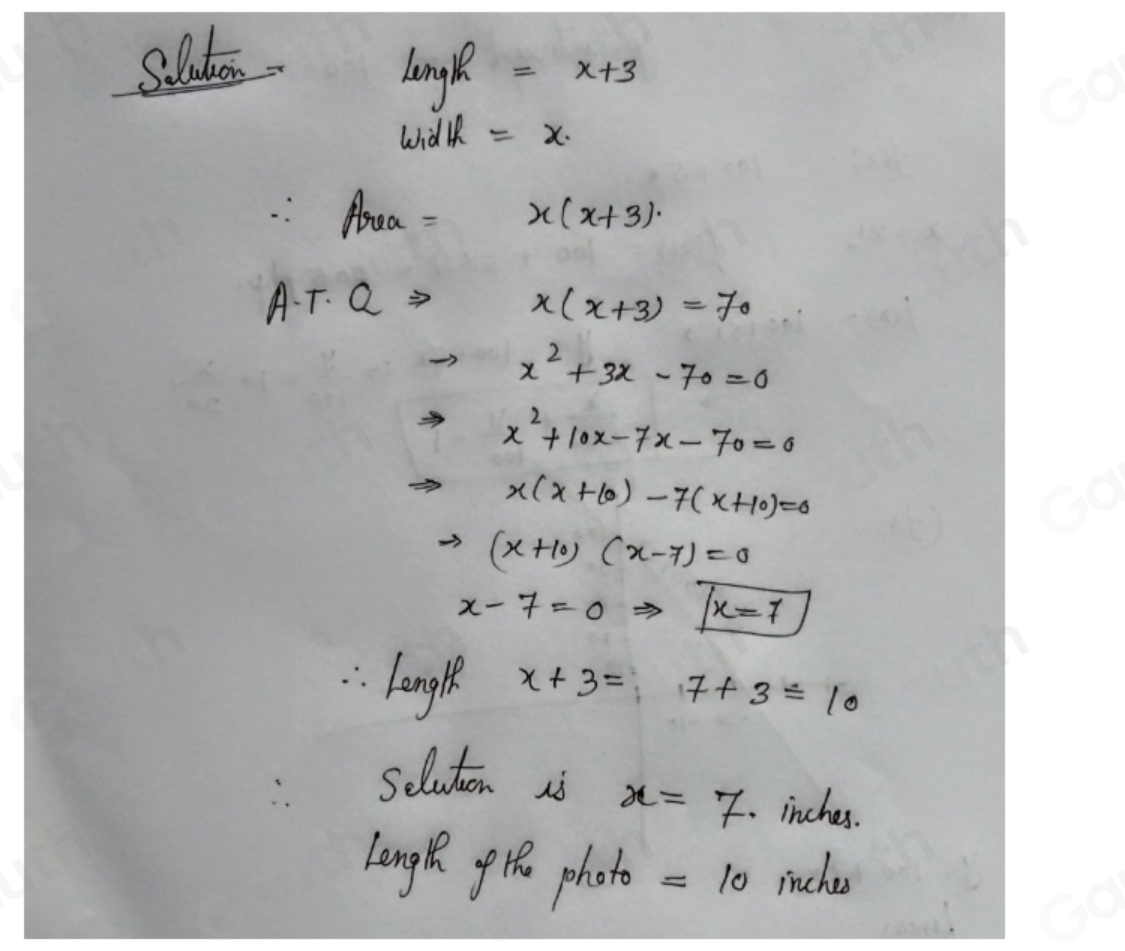 Solution - Length = x+3
Width = x.
∴ Area = x(x+3).
A.T.Q ⇒ x(x+3) = 70
→ x² + 3x - 70 = 0
⇒ x² + 10x - 7x - 70 = 0
⇒ x(x+10) - 7(x+10)=0
→ (x+10) (x-7) = 0
x - 7 = 0 ⇒ x=7
∴ Length x + 3 = 7 + 3 = 10
∴ Solution is x = 7. inches.
Length of the photo = 10 inches